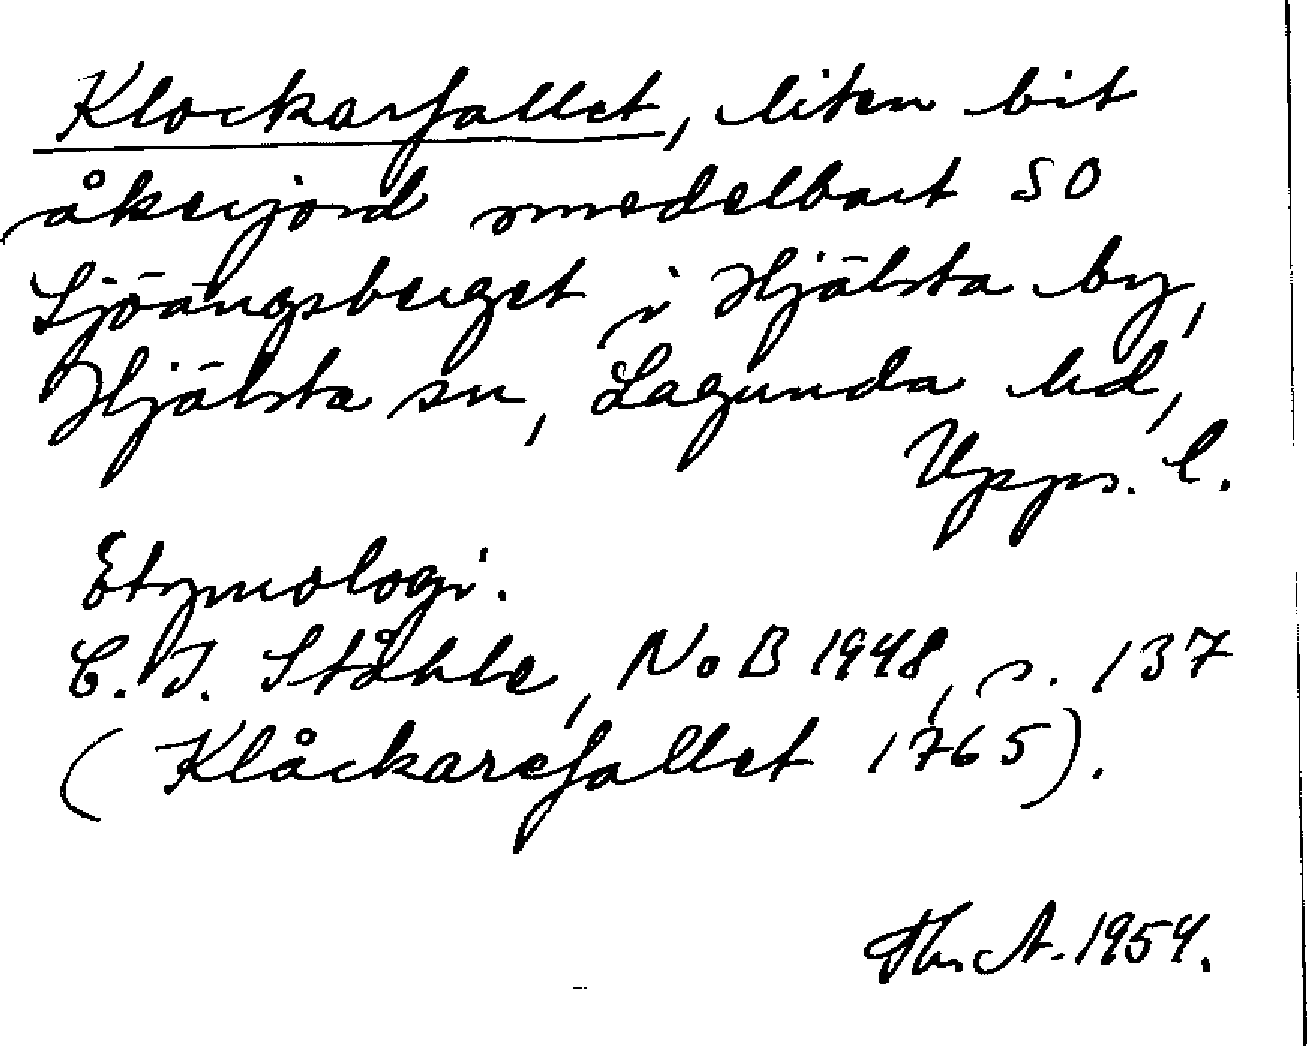 Klockarfallet, liten bit
åkerjord omedelbart SO
Sjöängsberget i Hjälsta by,
Hjälsta sn, Lagunda hd,
Upps. l.
Etymologi.
C. I. Ståhle, NoB 1948, s. 137
(Klåckarefallet 1765).
Th. A. 1954.